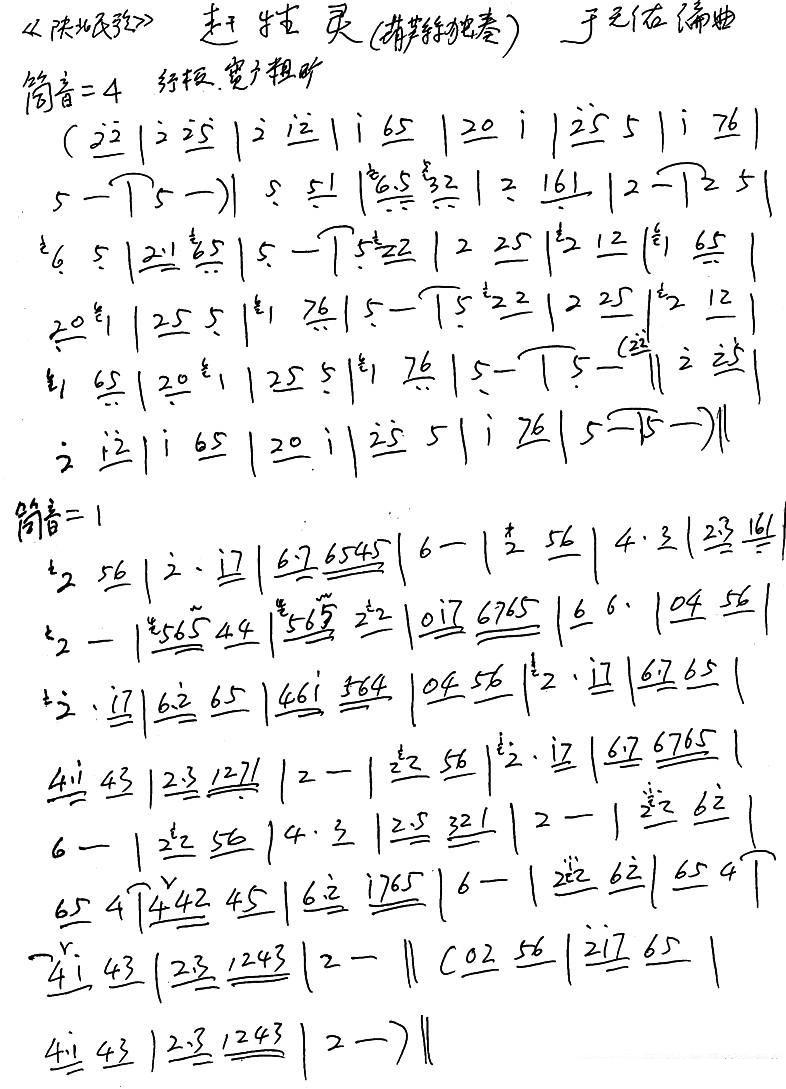 《陕北民歌》 赶牲灵(葫芦丝独奏) 于元佑编曲
筒音=4 行板.宽广粗旷
(2̇2̇ | 2̇ 2̇5̇ | 2̇ 1̇2̇ | 1̇ 65 | 20 1̇ | 2̇5̇ 5 | 1̇ 76 |
5 — | 5 —)‖ 5̣ 5̣1 | 6̣.5̣ 32 | 2 161 | 2 — | 2 5 |
6̣ 5̣ | 2.1 6̣5̣ | 5̣ — | 5̣ 22 | 2 25 | 2 12 | 1 6̣5̣ |
20 1 | 25 5̣ | 1 7̣6̣ | 5̣ — | 5̣ 22 | 2 25 | 2 12 |
1 6̣5̣ | 20 1 | 25 5̣ | 1 7̣6̣ | 5̣ — | 5̣ — (2̇2̇ ‖ 2̇ 2̇5̇ |
2̇ 1̇2̇ | 1̇ 65 | 20 1̇ | 2̇5̇ 5 | 1̇ 76 | 5 — | 5 —)‖
筒音=1
2 56 | 2̇ · 1̇7 | 6.7 6545 | 6 — | 2 56 | 4 · 3 | 2.3 161 |
2 — | 565 44 | 565 22 | 01̇7 6765 | 6 6· | 04 56 |
2̇ · 1̇7 | 6.2̇ 65 | 461̇ 564 | 04 56 | 2̇ · 1̇7 | 6.7 65 |
4.1̇ 43 | 2.3 1271 | 2 — | 22 56 | 2̇ · 1̇7 | 6.7 6765 |
6 — | 22 56 | 4 · 3 | 2.5 321 | 2 — | 2̇2̇ 62̇ |
65 4 | 442 45 | 6.2̇ 1̇765 | 6 — | 2̇2̇ 62̇ | 65 4 |
41̇ 43 | 2.3 1243 | 2 — ‖ (02 56 | 2̇1̇7 65 |
4.1̇ 43 | 2.3 1243 | 2 —)‖